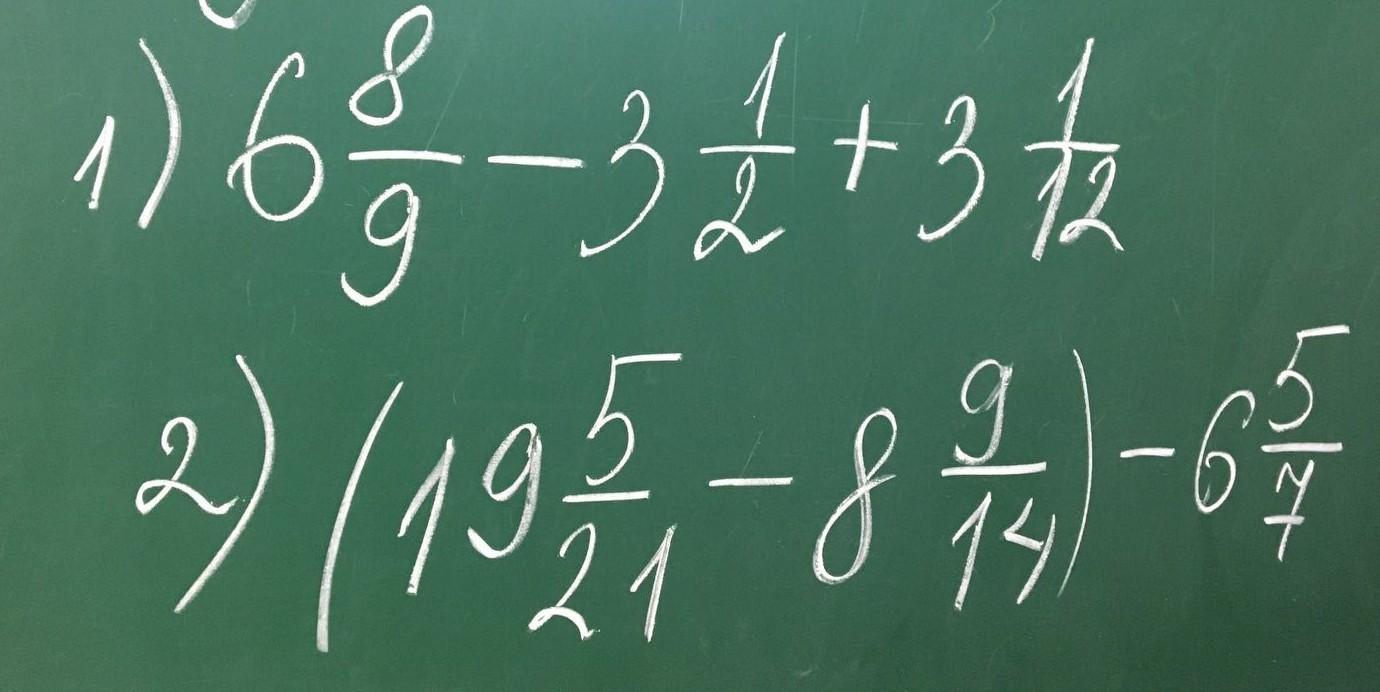 1) 6 8/9 - 3 1/2 + 3 1/12
2) (19 5/21 - 8 9/14) - 6 5/7